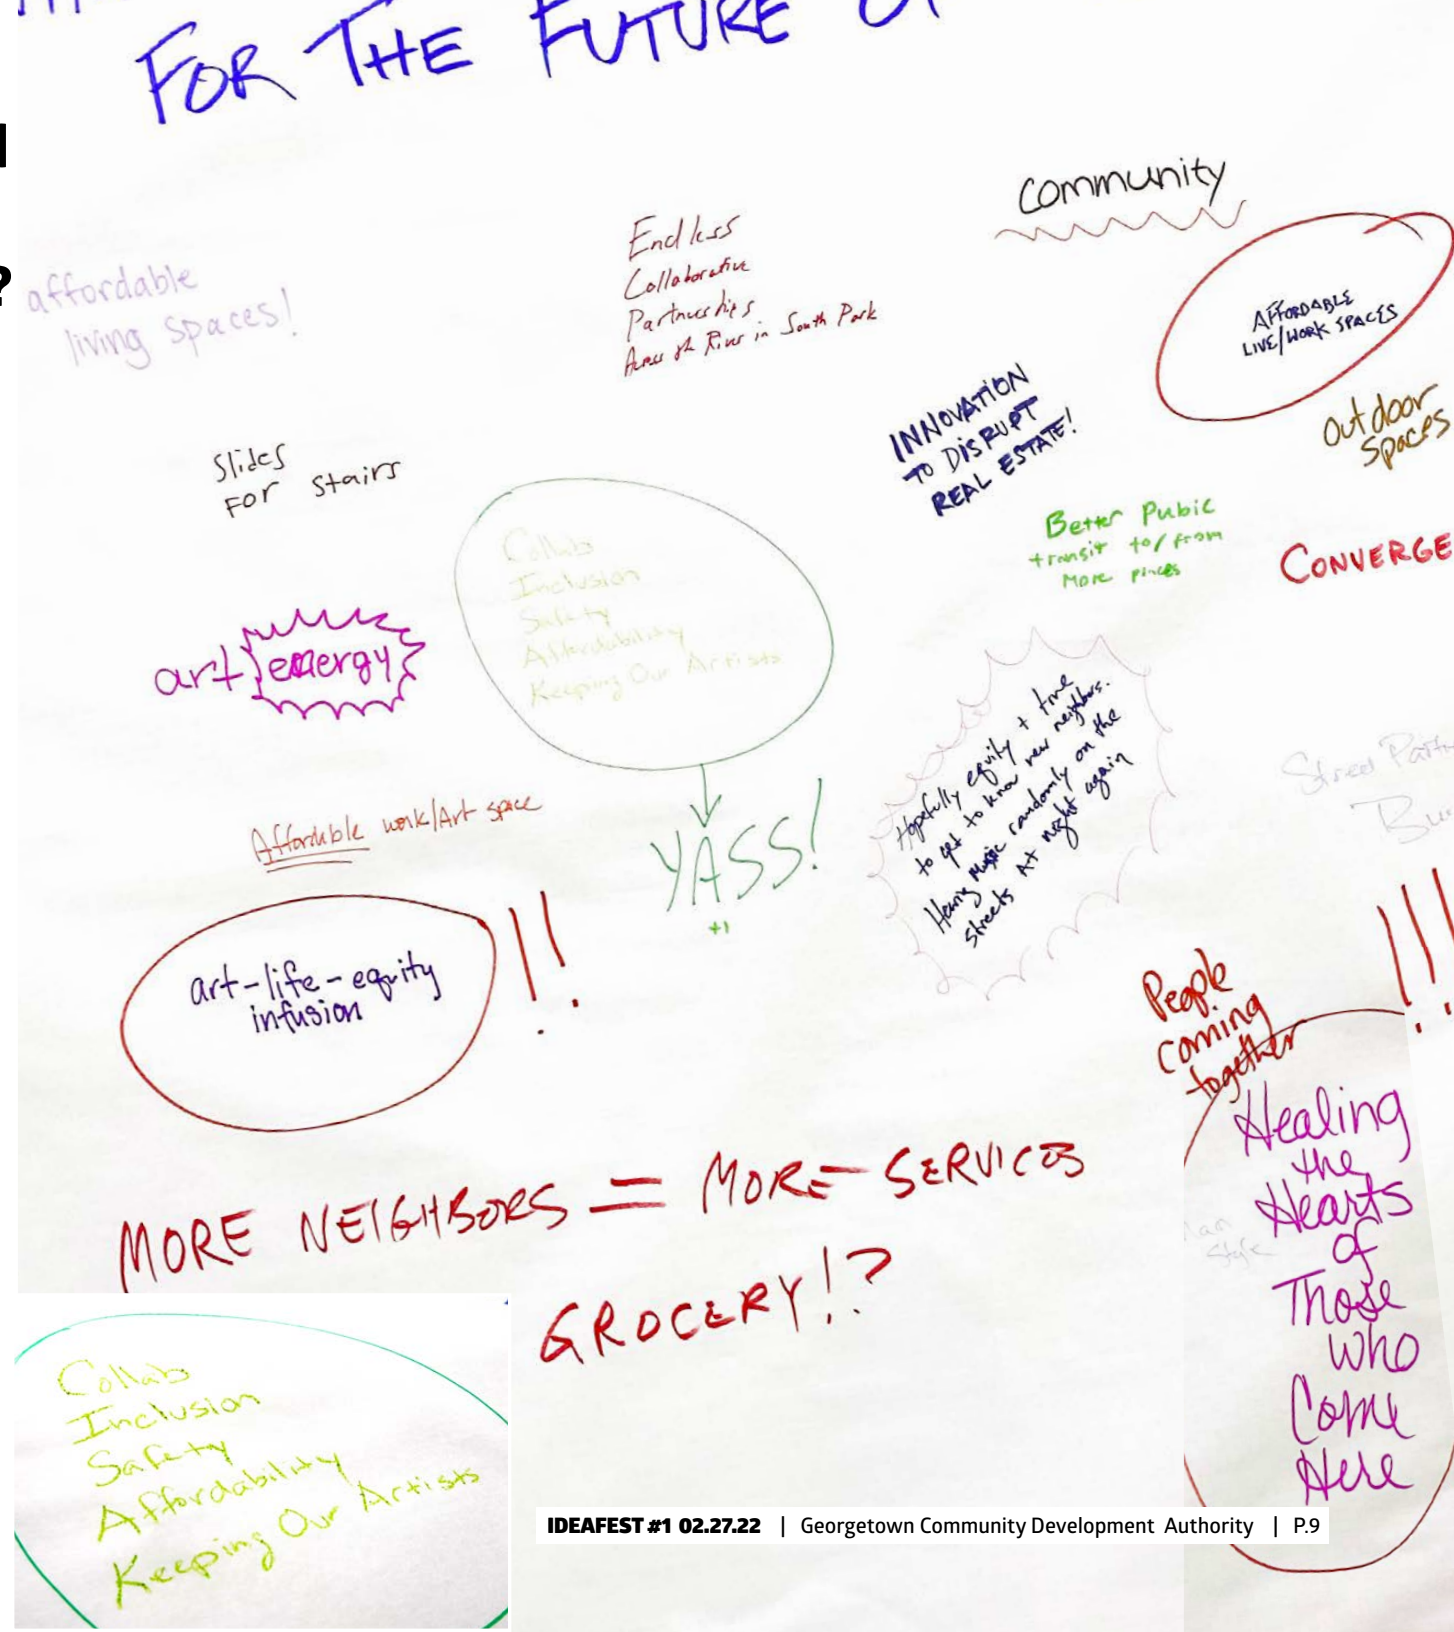 FOR THE FUTURE
?
affordable
living spaces!
Endless
Collaborative
Partnerships
Across the River in South Park
Community
AFFORDABLE
LIVE/WORK SPACES
INNOVATION
TO DISRUPT
REAL ESTATE!
Outdoor
Spaces
Slides
For Stairs
Better Pubic
transit to/from
More places
CONVERGE
Collab
Inclusion
Safety
Affordability
Keeping Our Artists
art energy
Hopefully equity + time
to get to know new neighbors.
Having Music randomly on the
streets At night again
Street
Affordable work/Art space
YASS!
+1
art-life-equity
infusion
!!
!!!
People
coming
together
Healing
the
Hearts
of
Those
who
Come
Here
MORE NEIGHBORS = MORE SERVICES
GROCERY!?
Collab
Inclusion
Safety
Affordability
Keeping Our Artists
IDEAFEST #1 02.27.22 | Georgetown Community Development Authority | P.9